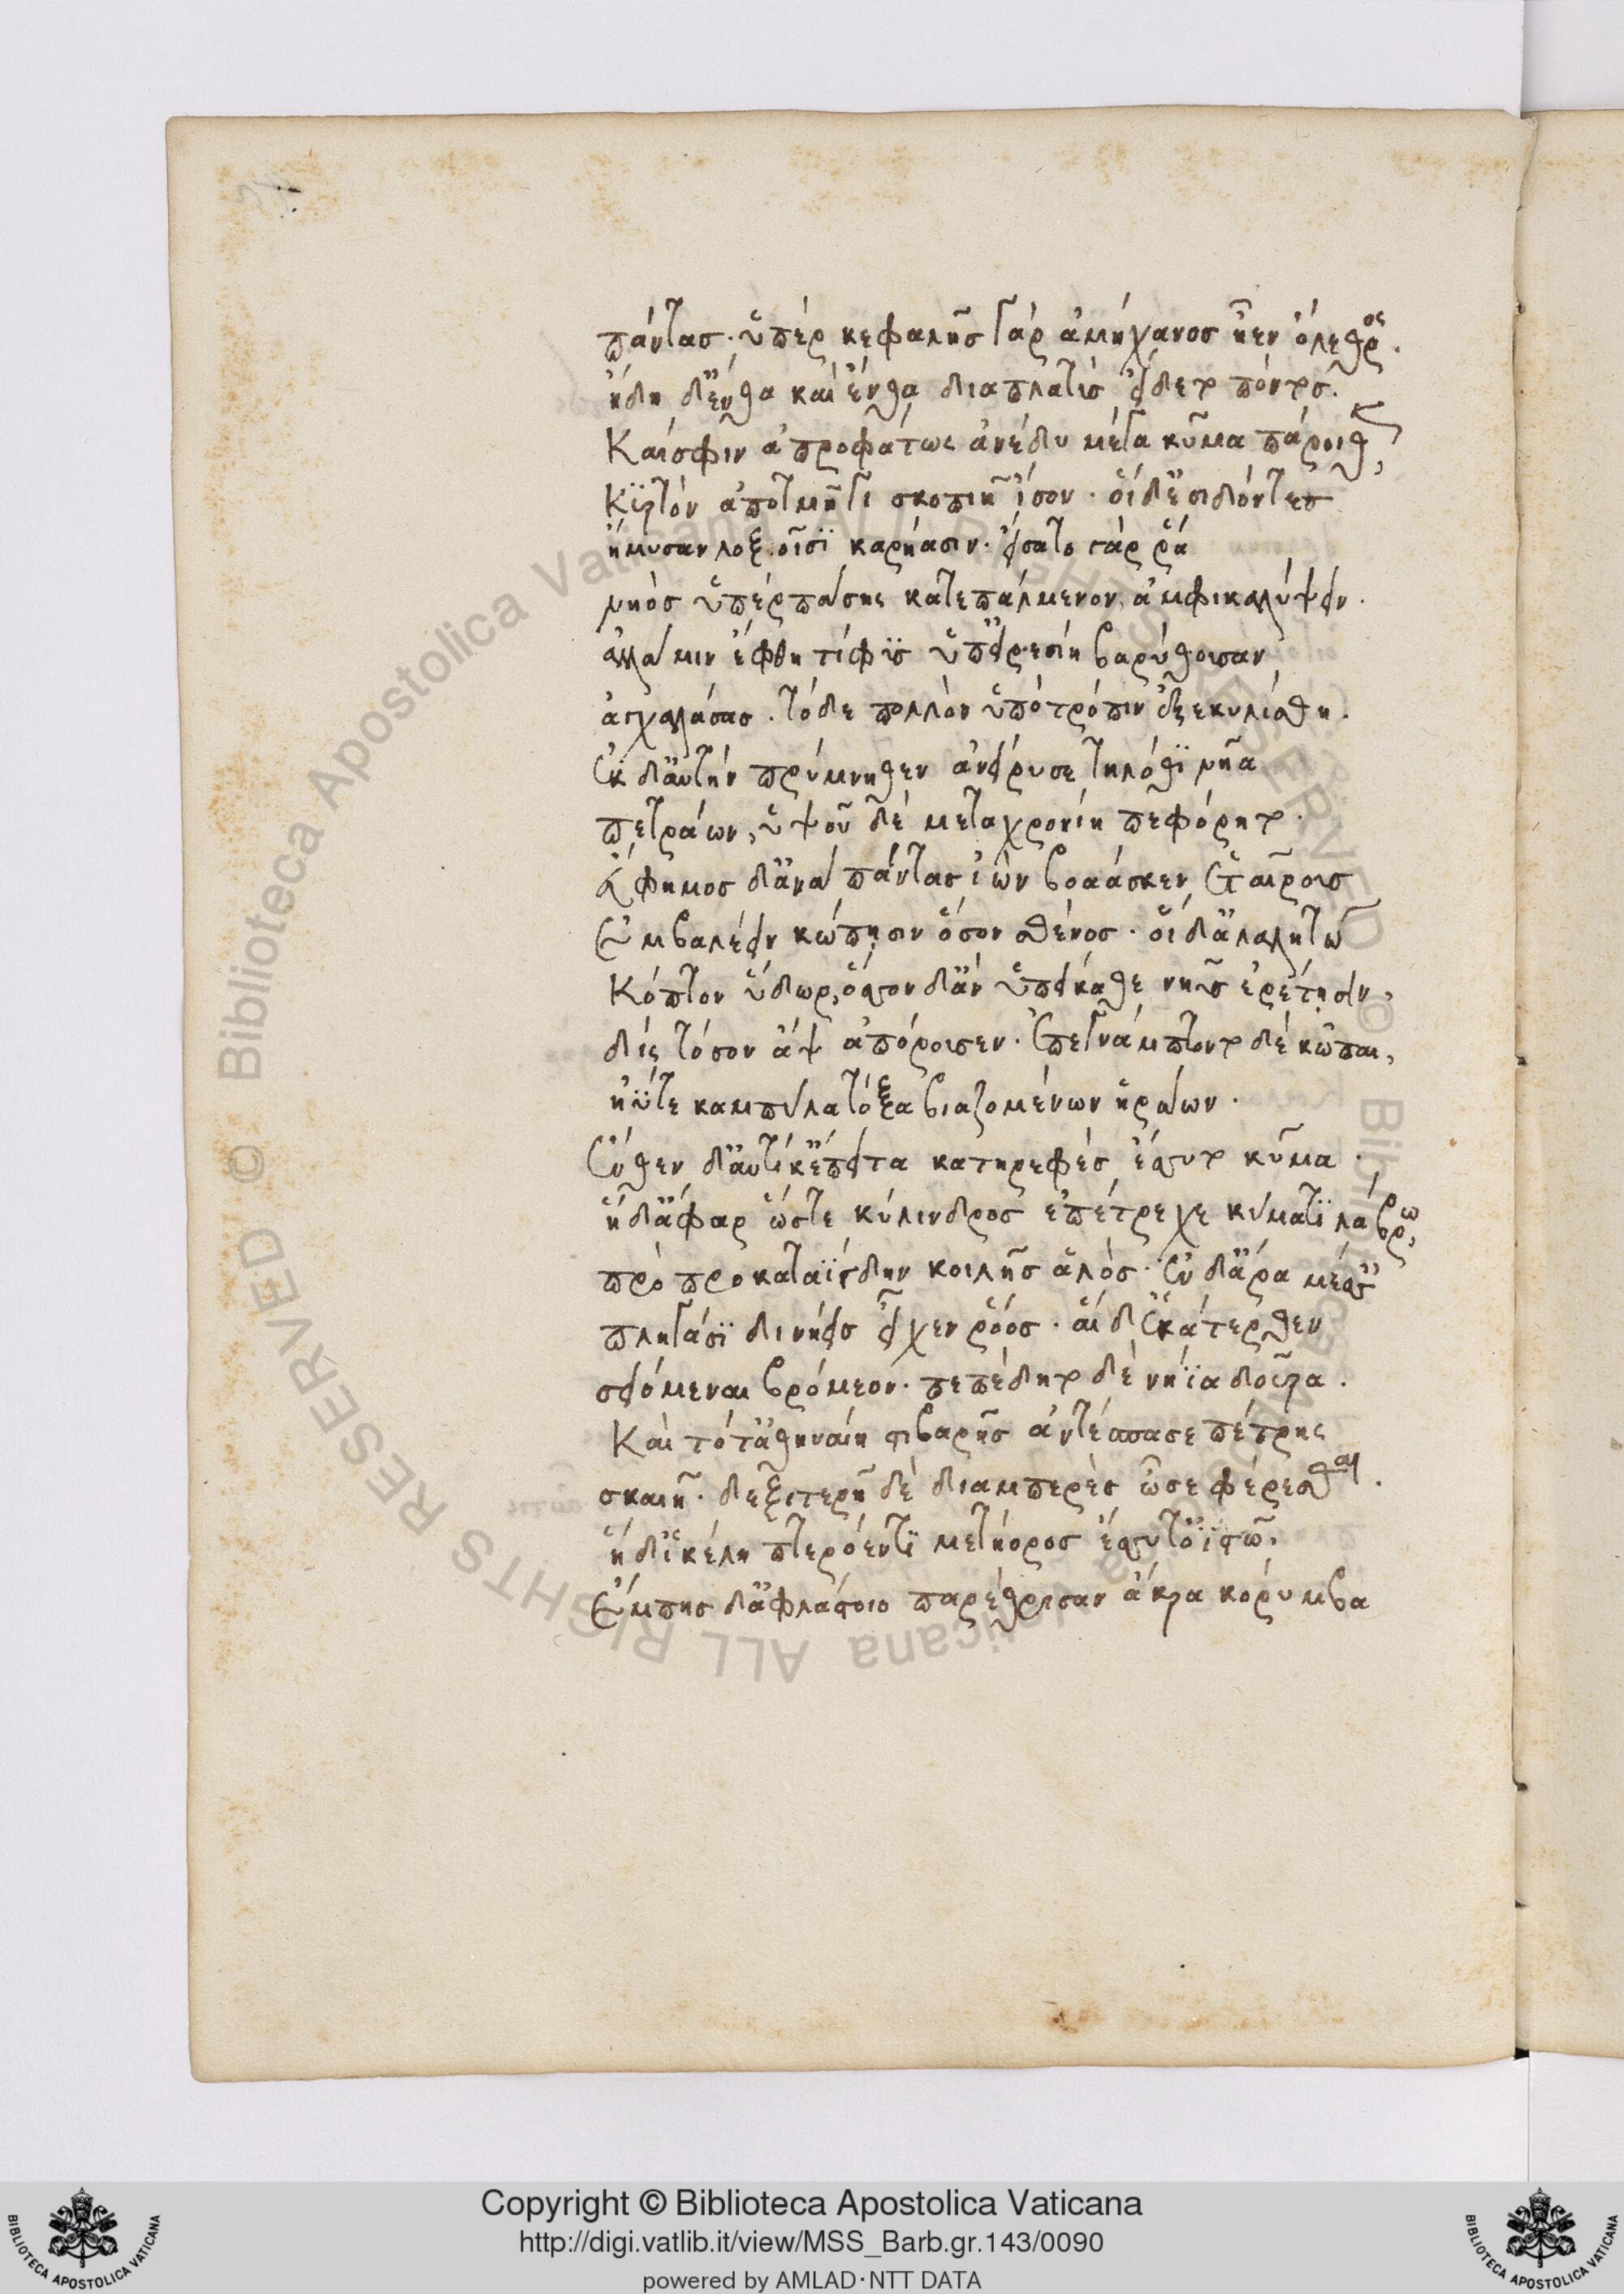 πάντας· ὑπὲρ κεφαλῆς γὰρ ἀμήχανος ἦεν ὄλεθρος.
ἤδη δ' ἔνθα καὶ ἔνθα διαπλατὺς εἴδετο πόντος.
Καί σφιν ἀπροφάτως ἀνέδυ μέγα κῦμα πάροιθε,
Κυρτὸν ἀποτμῆγι σκοπιῇ ἴσον· οἱ δ' ἐσιδόντες
ἤμυσαν λοξοῖσϊ καρήασιν· εἴσατο γάρ ῥά
νηὸς ὑπὲρ πάσης κατεπάλμενον ἀμφικαλύψειν.
ἀλλά μιν ἔφθη τίφυς ὑπ' εἰρεσίῃ βαρύθουσαν
ἀγχαλάσας. τὸ δὲ πολλὸν ὑπὸ τρόπιν ἐξεκυλίσθη.
Ἐκ δ' αὐτὴν πρύμνηθεν ἀνείρυσε τηλόθϊ νῆα
πετράων, ὑψοῦ δὲ μεταχρονίη πεφόρητο.
Εὔφημος δ' ἀνὰ πάντας ἰὼν βοάασκεν ἑταίροις
Ἐμβαλέειν κώπῃσιν ὅσον σθένος· οἱ δ' ἀλαλητῷ
Κόπτον ὕδωρ, ὅσσον δ' ἂν ὑπείκαθε νηῦς ἐρέτῃσιν,
δὶς τόσον ἂψ ἀπόρουσεν. Ἐπεγνάμπτοντο δὲ κῶπαι,
ἠΰτε καμπύλα τόξα βιαζομένων ἡρώων.
Ἔνθεν δ' αὐτίκ' ἔπειτα κατηρεφὲς ἔσσυτο κῦμα.
ἡ δ' ἄφαρ ὥστε κύλινδρος ἐπέτρεχε κύματϊ λάβρῳ,
προπροκαταΐγδην κοίλης ἁλός. Ἐν δ' ἄρα μέσσ
πληγάσϊ δινήεις εἶχεν ῥόος. αἱ δ' ἑκάτερθεν
σειόμεναι βρόμεον. πεπέδητο δὲ νήϊα δοῦρα.
Καὶ τότ' ἀθηναίη στιβαρῆς ἀντέσπασε πέτρης
σκαιῇ. δεξιτερῇ δὲ διαμπερὲς ὦσε φέρεσθαι.
ἡ δ' ἰκέλη πτερόεντϊ μετήορος ἔσσυτ' ὀϊστῷ.
Ἔμπης δ' ἀφλάστοιο παρέθρισαν ἄκρα κόρυμβα
Copyright © Biblioteca Apostolica Vaticana
http://digi.vatlib.it/view/MSS_Barb.gr.143/0090
powered by AMLAD·NTT DATA